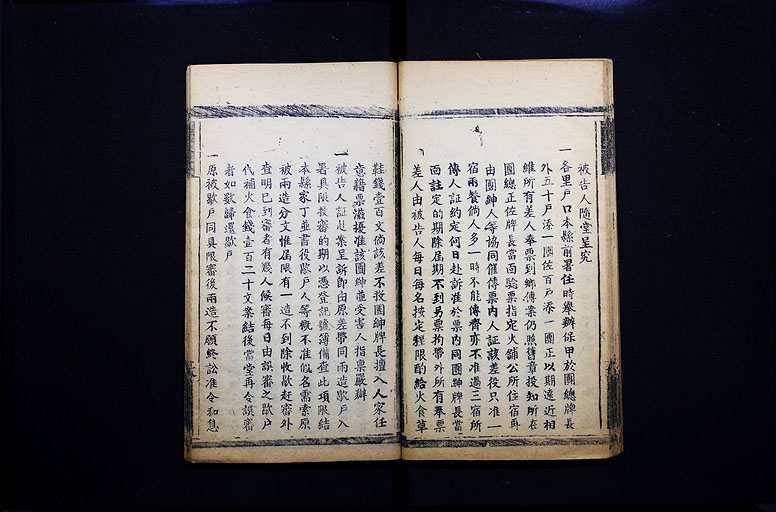 被告人隨堂呈究
一各里戶口本縣前署任時舉辦保甲於團總牌長
外五十戶添一團佐百戶添一團正以期遠近相
維所有差人奉票到鄉傳案仍照舊章投知所在
團總正佐牌長當面驗票指定火鋪公所住宿再
由團紳人等協同催傳票內人証該差役只准一
宿兩餐倘人多一時不能傳齊亦不准過三宿所
傳人証約定何日赴訴准於票內同團紳牌長當
面註定的期除屆期不到另票拘帶外所有奉票
差人由被告人每日每名按定程限酌給火食草
鞋錢壹百文倘該差不投團紳牌長擅入人家任
意藉票滋擾准該團紳並受害人指票嚴辦
一被告人証赴案呈訴即由原差帶同兩造歇戶入
署具限投審的期以憑登記號簿備查此項限結
本縣家丁並書役歇戶人等概不准假名需索原
被兩造分文惟屆限有一造不到除收歇赴審外
查明已到審者有幾人候審每日由誤審之歇戶
代補火食錢壹百二十文案結後當堂再令誤審
者如數歸還歇戶
一原被歇戶同具限審後兩造不願終訟准令和息